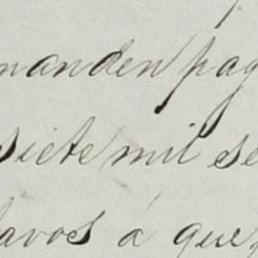 manden pag
siete mil se
tavos á que